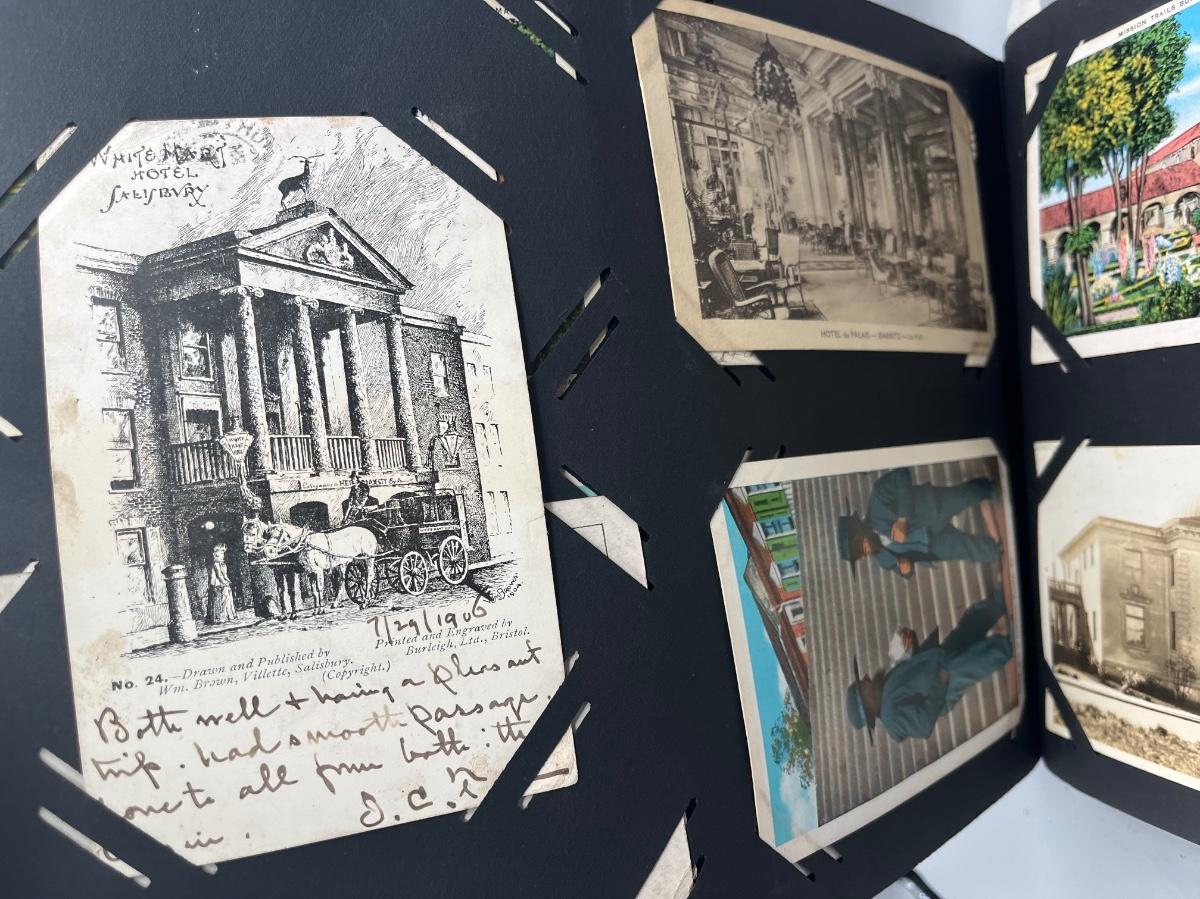 WHITE HART
HOTEL
SALISBURY
7/29/1906
No. 24.—Drawn and Published by
Wm. Brown, Villette, Salisbury.
(Copyright.)
Printed and Engraved by
Burleigh, Ltd., Bristol.
Both well & having a pleasant
trip. had smooth passage.
to all from both: the
in.
HOTEL du PALAIS — BIARRITZ —
MISSION TRAILS